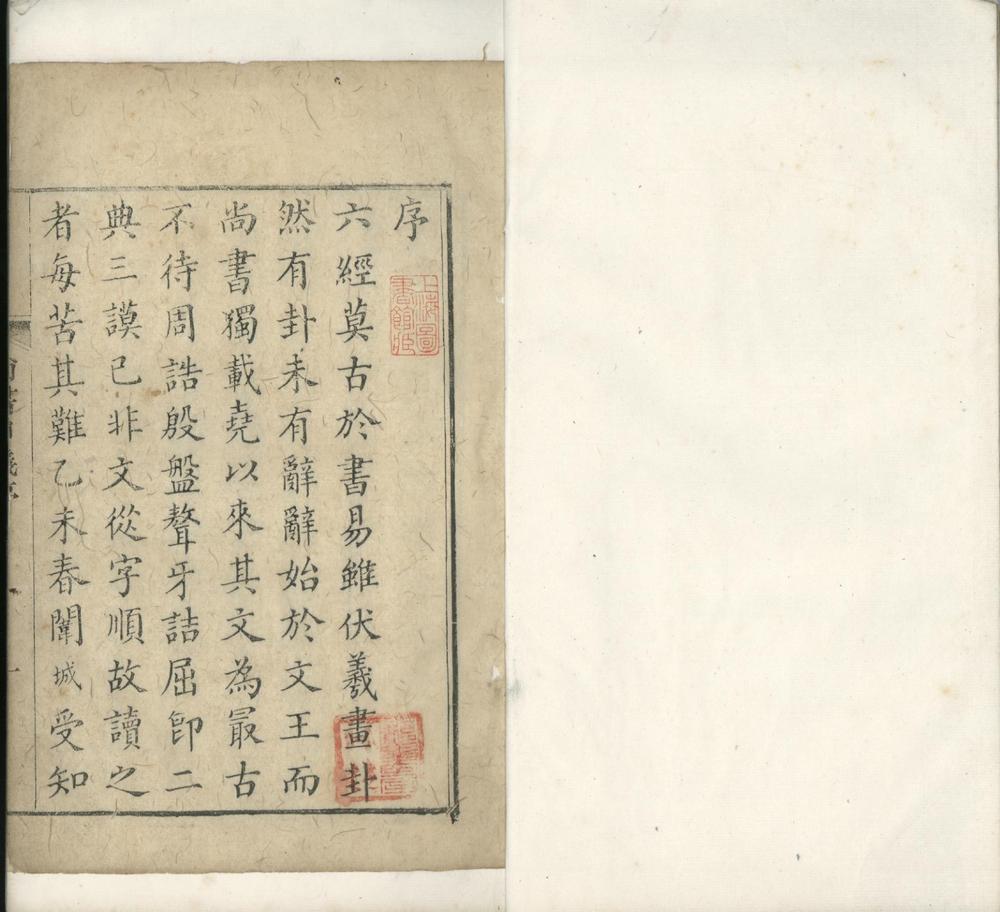 序
六經莫古於書易雖伏羲畫卦
然有卦未有辭辭始於文王而
尚書獨載堯以來其文為冣古
不待周誥殷盤聱牙詰屈卽二
典三謨已非文從字順故讀之
者每苦其難乙未春闈城受知
上海圖
書館藏